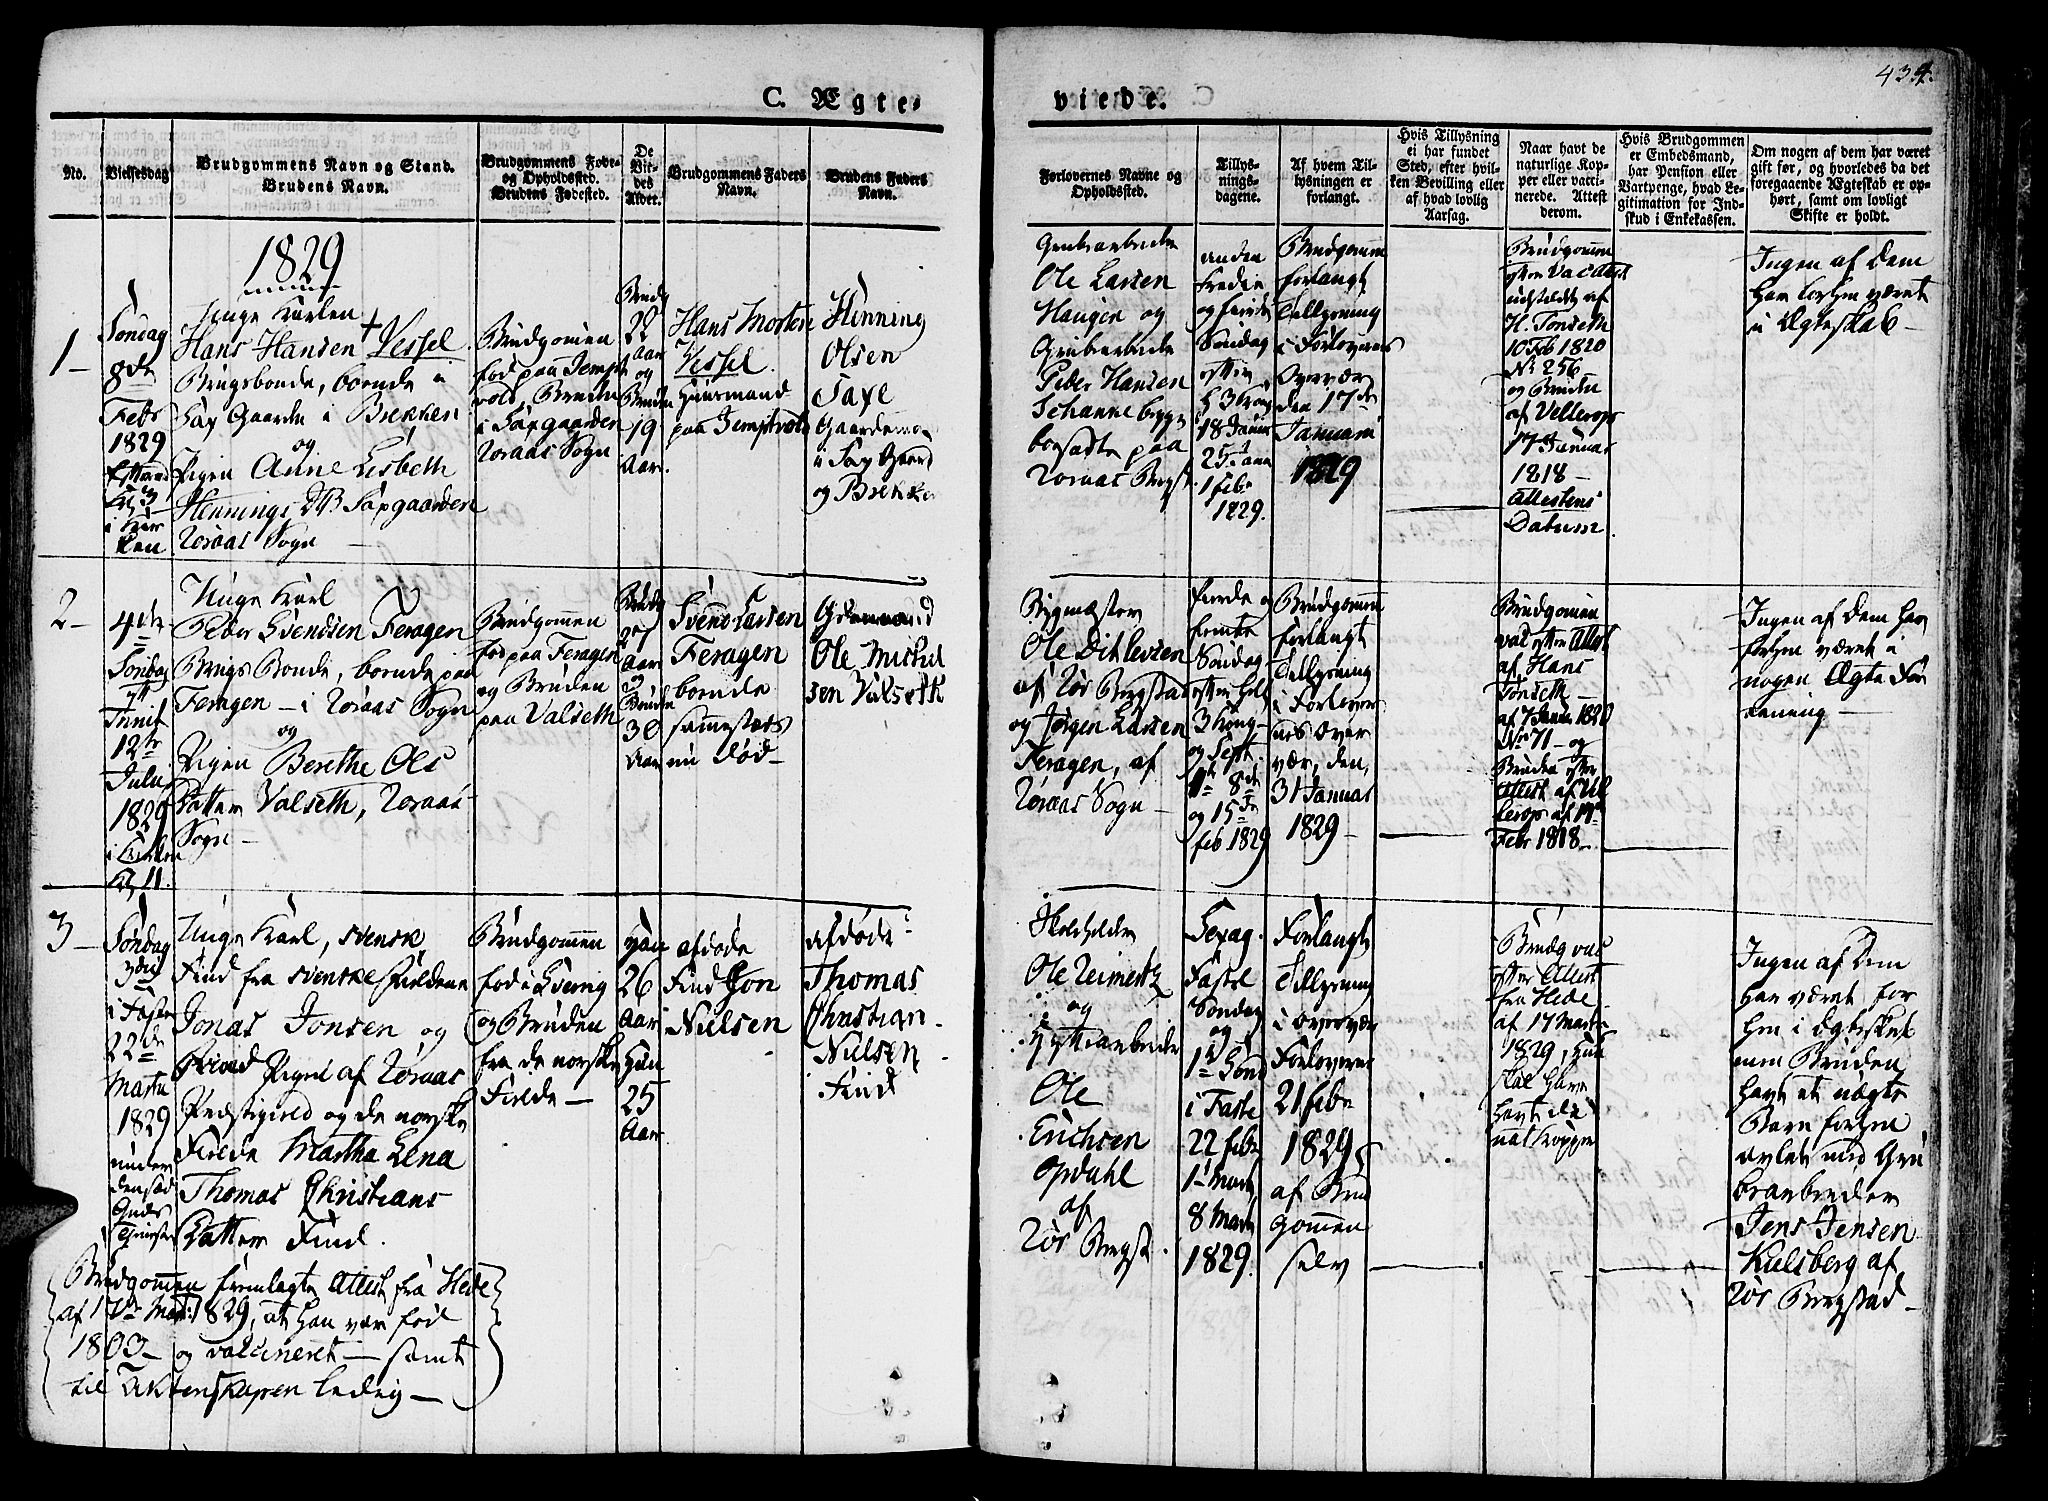 434.
C. Ægte-
viede.
No.
Vielsesdag
Brudgommens Navn og Stand.
Brudens Navn.
Brudgommens Føde-
og Opholdssted.
Brudens Fødested.
De
Vie-
des
Alder.
Brudgommens Faders
Navn.
Brudens Faders
Navn.
Forlovernes Navne og
Opholdssted.
Tillys-
nings-
dagene.
Af hvem Til-
lysningen er
forlangt.
Hvis Tillysning
ei har fundet
Sted, efter hvil-
ken Bevilling eller
af hvad lovlig
Aarsag.
Naar havt de
naturlige Kop-
per eller vacci-
nerede. Attest
derom.
Hvis Brudgommen
er Embedsmand,
har Pension eller
Vartpenge, hvad Le-
gitimation for Ind-
skud i Enkekassen.
Om nogen af dem har været
gift før, og hvorledes da det
foregaaende Ægteskab er op-
hørt, samt om lovligt
Skifte er holdt.
1829
1-
Søndag
8de
Febr
1829
Kl. 3
i Kir
ken
Unge Karlen
Hans Hansen + Vessel
Brugsbonde, boende i
Sax Gaarden i Brekken
og
Pigen Anne Lisbeth
Hennings DB Saxgaarden
Røraas Sogn -
Brudgomen
fød paa Jempt
vold, Bruden
i Saxgaarden
Røraas Sogn
Brudg
22
Aar
og
Bruden
19
Aar.
Hans Morten
Vessel.
Huusmand
paa Jemptvold
Henning
Olsen
Saxe
Gaardeman
i Sax Gaard
og Brekken
Grubearbeider
Ole Larsen
Haugen og
Grubearbeider
Peder Hansen
bosadte paa
Røraas Bergst.
anden
Søndag
efter
H 3 Kong
18 Januar
25 Janu
1 febr
1829.
Brudgomen
forlangt
Tillysning
i Forlovernes
Overvær
den 17de
Januarii
1829
Brudgomen
efter Vac Attest
udstædet af
H. Tønseth
10 Feb 1820
No 256
og Bruden
af Vellerop
17 Januar
1818 -
Attestens
Datum
Ingen af Dem
har forhen været
i Ægteskab -
2-
4de
Søndag
Trinit
12te
Julii
1829
i Kirken
Kl 11.
Unge Karl
Peder Svendsen Feragen
Brugs Bonde, boende paa
Feragen - i Røraas Sogn
og
Pigen Berethe Ols
Datter Valseth, Røraas
Sogn -
Brudgomen
fød paa Feragen
og Bruden
paa Valseth
Brudg
27
Aar
og
Bruden
30
Aar
Svend Larsen
Feragen
boende
sammesteds
nu død -
Ole Michel
sen Valseth
Bygmester
Ole Ditlevsen
af Rør Bergstad
og Jørgen Larsen
Feragen, af
Røraas Sogn -
fierde og
femte
Søndag
efter Hell
3 Kong
og Sept
1te 8de
og 15de
feb 1829
Brudgomen
forlangt
Tillysning
i Forlover
nes Over
vær, den
31 Januar
1829 -
Brudgomen
vac efter Attest
af Hans
Tønseth -
af 7 Januar 1820
No 71 - og
Bruden efter
Attest af Vel
lerop af 17de
Febr 1818 -
Ingen af Dem har
forhen været i
nogen Ægte For
eening -
3-
Søndag
3die
i Fasten
22de
Martii
1829
under
Guds
Tjenesten
Unge Karl, svensk
Find fra svenske Fieldene
Jonas Jonsen, og
Pigen af Røraas
Præstegield og de norske
Fielde Martha Lena
Thomas Christians
Datter Find.
Brudgomen
fød i Sverrig
og Bruden
fra de norske
Fielde -
Han
26
Aar
Hun
25
Aar
afdøde
Find Jon
Nielsen
afdøde
Thomas
Christian
Nielsen
Find
Skoleholder
Ole Reimertz
og
Hytte arbeider
Ole
Erichsen
Opdahl
af
Rør Bergst.
Sexag.
Fastel
Søndag
og
1te Sønd
i Faste
22 feb
1 Mart
8 Mart
1829.
Forlangt
Tillysning
i overvær
Forloverne
21 febr
1829
af Brud
gommen
selv
Brudg vac
efter Attest
fra Hede
af 17 Martii
1829, Hun
skal have
havt de
nat kopper
Ingen af Dem
har været for
hen i Ægteskab
men Bruden
havt et uægte
Barn forhen
avlet med Gru
bearbeider
Jens Jensen
Kulsberg af
Rør Bergstad -
Brudgommen fremlagte Attest fra Hede
af 17de Marti 1829, at han var fød
1803 - og vaccineret - samt
til Æktenskapen ledig -